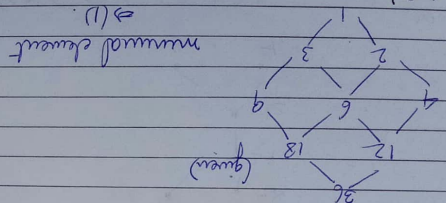 36
12 18 (given)
4 6 9
2 3 minimal element
1 ⇒ (1).